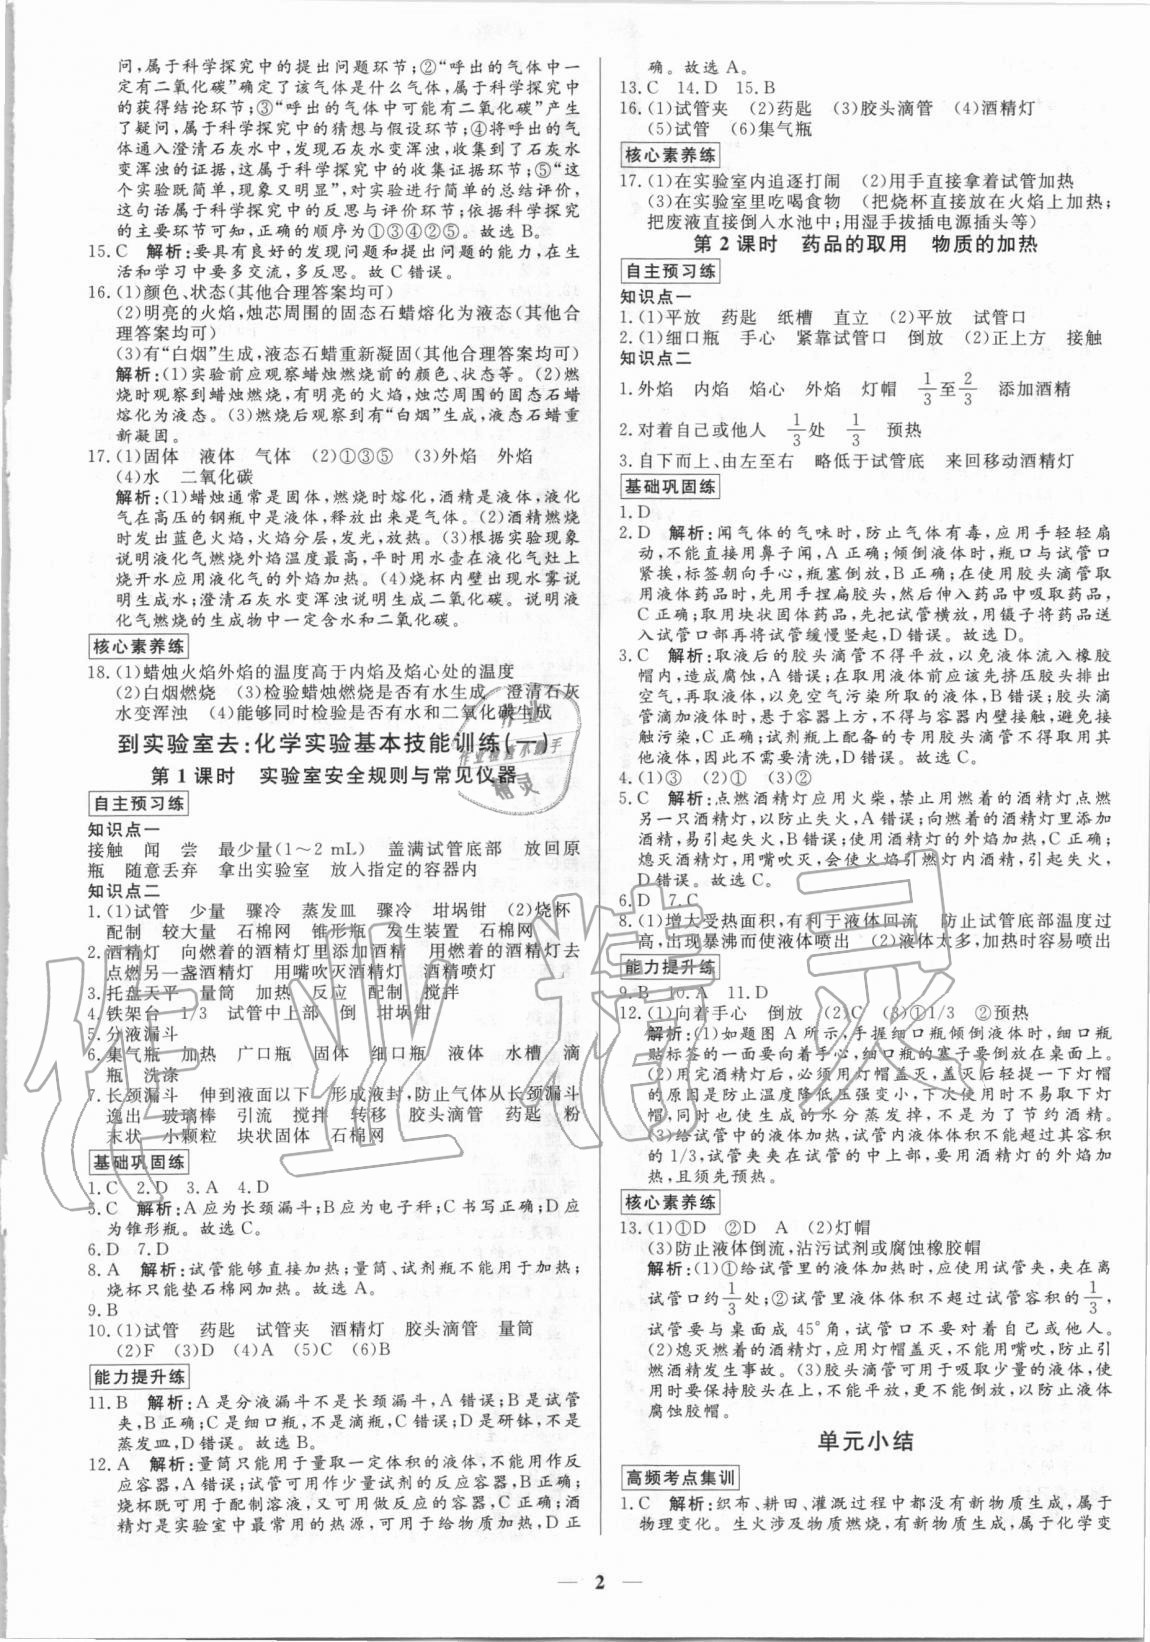 问,属于科学探究中的提出问题环节;②“呼出的气体中一
定有二氧化碳”确定了该气体是什么气体,属于科学探究中
的获得结论环节;③“呼出的气体中可能有二氧化碳”产生
了疑问,属于科学探究中的猜想与假设环节;④将呼出的气
体通入澄清石灰水中,发现石灰水变浑浊,收集到了石灰水
变浑浊的证据,这属于科学探究中的收集证据环节;⑤“这
个实验既简单,现象又明显”,对实验进行简单的总结评价,
这句话属于科学探究中的反思与评价环节;依据科学探究
的主要环节可知,正确的顺序为①③④②⑤。故选B。
15.C 解析:要具有良好的发现问题和提出问题的能力,在生
活和学习中要多交流,多反思。故C错误。
16.(1)颜色、状态(其他合理答案均可)
(2)明亮的火焰,烛芯周围的固态石蜡熔化为液态(其他合
理答案均可)
(3)有“白烟”生成,液态石蜡重新凝固(其他合理答案均可)
解析:(1)实验前应观察蜡烛燃烧前的颜色、状态等。(2)燃
烧时观察到蜡烛燃烧,有明亮的火焰,烛芯周围的固态石蜡
熔化为液态。(3)燃烧后观察到有“白烟”生成,液态石蜡重
新凝固。
17.(1)固体 液体 气体 (2)①③⑤ (3)外焰 外焰
(4)水 二氧化碳
解析:(1)蜡烛通常是固体,燃烧时熔化,酒精是液体,液化
气在高压的钢瓶中是液体,释放出来是气体。(2)酒精燃烧
时发出蓝色火焰,火焰分层,发光,放热。(3)根据实验现象
说明液化气燃烧外焰温度最高,平时用水壶在液化气灶上
烧开水应用液化气的外焰加热。(4)烧杯内壁出现水雾说
明生成水;澄清石灰水变浑浊说明生成二氧化碳。说明液
化气燃烧的生成物中一定含水和二氧化碳。
核心素养练
18.(1)蜡烛火焰外焰的温度高于内焰及焰心处的温度
(2)白烟燃烧 (3)检验蜡烛燃烧是否有水生成 澄清石灰
水变浑浊 (4)能够同时检验是否有水和二氧化碳生成
到实验室去:化学实验基本技能训练(一)
第1课时 实验室安全规则与常见仪器
自主预习练
知识点一
接触 闻 尝 最少量(1～2 mL) 盖满试管底部 放回原
瓶 随意丢弃 拿出实验室 放入指定的容器内
知识点二
1.(1)试管 少量 骤冷 蒸发皿 骤冷 坩埚钳 (2)烧杯
配制 较大量 石棉网 锥形瓶 发生装置 石棉网
2.酒精灯 向燃着的酒精灯里添加酒精 用燃着的酒精灯去
点燃另一盏酒精灯 用嘴吹灭酒精灯 酒精喷灯
3.托盘天平 量筒 加热 反应 配制 搅拌
4.铁架台 1/3 试管中上部 倒 坩埚钳
5.分液漏斗
6.集气瓶 加热 广口瓶 固体 细口瓶 液体 水槽 滴
瓶 洗涤
7.长颈漏斗 伸到液面以下 形成液封,防止气体从长颈漏斗
逸出 玻璃棒 引流 搅拌 转移 胶头滴管 药匙 粉
末状 小颗粒 块状固体 石棉网
基础巩固练
1.C 2.D 3.A 4.D
5.C 解析:A应为长颈漏斗;B应为电子秤;C书写正确;D应
为锥形瓶。故选C。
6.D 7.D
8.A 解析:试管能够直接加热;量筒、试剂瓶不能用于加热;
烧杯只能垫石棉网加热。故选A。
9.B
10.(1)试管 药匙 试管夹 酒精灯 胶头滴管 量筒
(2)F (3)D (4)A (5)C (6)B
能力提升练
11.B 解析:A是分液漏斗不是长颈漏斗,A错误;B是试管
夹,B正确;C是细口瓶,不是滴瓶,C错误;D是研钵,不是
蒸发皿,D错误。故选B。
12.A 解析:量筒只能用于量取一定体积的液体,不能用作反
应容器,A错误;试管可用作少量试剂的反应容器,B正确;
烧杯既可用于配制溶液,又可用做反应容器,C正确;酒
精灯是实验室中最常用的热源,可用于给物质加热,D正
确。故选A。
13.C 14.D 15.B
16.(1)试管夹 (2)药匙 (3)胶头滴管 (4)酒精灯
(5)试管 (6)集气瓶
核心素养练
17.(1)在实验室内追逐打闹 (2)用手直接拿着试管加热
(3)在实验室里吃喝食物 (把烧杯直接放在火焰上加热;
把废液直接倒入水池中;用湿手拔插电源插头等)
第2课时 药品的取用 物质的加热
自主预习练
知识点一
1.(1)平放 药匙 纸槽 直立 (2)平放 试管口
2.(1)细口瓶 手心 紧靠试管口 倒放 (2)正上方 接触
知识点二
1.外焰 内焰 焰心 外焰 灯帽 1/3至2/3 添加酒精
2.对着自己或他人 1/3处 1/3 预热
3.自下而上、由左至右 略低于试管底 来回移动酒精灯
基础巩固练
1.D
2.D 解析:闻气体的气味时,防止气体有毒,应用手轻轻扇
动,不能直接用鼻子闻,A正确;倾倒液体时,瓶口与试管口
紧挨,标签朝向手心,瓶塞倒放,B正确;在使用胶头滴管取
用液体药品时,先用手捏扁胶头,然后伸入药品中吸取药品,
C正确;取用块状固体药品,先把试管横放,用镊子将药品送
入试管口部再将试管缓慢竖起,D错误。故选D。
3.C 解析:取液后的胶头滴管不得平放,以免液体流入橡胶
帽内,造成腐蚀,A错误;在取用液体前应该先挤压胶头排出
空气,再取液体,以免空气污染所取的液体,B错误;胶头滴
管滴加液体时,悬于容器上方,不得与容器内壁接触,避免接
触污染,C正确;试剂瓶上配备的专用胶头滴管只取用其相
应液体,因此不需要清洗,D错误。故选C。
4.(1)① (2)③ (3)②
5.C 解析:点燃酒精灯应用火柴,禁止用燃着的酒精灯点燃
另一只酒精灯,以防止失火,A错误;向燃着的酒精灯里添加
酒精,易引起失火,B错误;使用酒精灯的外焰加热,C正确;
熄灭酒精灯,用嘴吹灭,会使火焰引燃灯内酒精,引起失火,
D错误。故选C。
6.D 7.C
8.(1)增大受热面积,有利于液体回流 防止试管底部温度过
高,出现暴沸而使液体喷出 (2)液体太多,加热时容易喷出
能力提升练
9.B 10.A 11.D
12.(1)向着手心 倒放 (2)C (3)①1/3 ②预热
解析:(1)如题图A所示,手握细口瓶倾倒液体时,细口瓶
贴标签的一面要向着手心,细口瓶的塞子要倒放在桌面上。
(2)用完酒精灯后,必须用灯帽盖灭,盖灭后不再重盖一次
的原因是防止温度降低压强变小,下次使用时不易取下灯
帽,同时也使生成的水分蒸发掉,不是为了节约酒精。
(3)给试管中的液体加热,试管内液体体积不能超过其容积
的1/3,试管夹夹在试管的中上部,要用酒精灯的外焰加
热,且须先预热。
核心素养练
13.(1)①D ②D A (2)灯帽
(3)防止液体倒流,沾污试剂或腐蚀橡胶帽
解析:(1)①给试管里的液体加热时,应使用试管夹,夹在离
试管口约1/3处;②试管里液体体积不超过试管容积的1/3,
试管要与桌面成45°角,试管口不要对着自己或他人。
(2)熄灭燃着的酒精灯,应用灯帽盖灭,不能用嘴吹,以防止引
燃酒精发生事故。(3)胶头滴管可用于吸取少量的液体,使
用时要保持胶头在上,不能平放,更不能倒放,以防止液体
腐蚀胶帽。
单元小结
高频考点集训
1.C 解析:织布、耕田、灌溉过程中都没有新物质生成,属于
物理变化。生火涉及物质燃烧,有新物质生成,属于化学变
2
作业精灵
作业
作业检查小助手
精灵